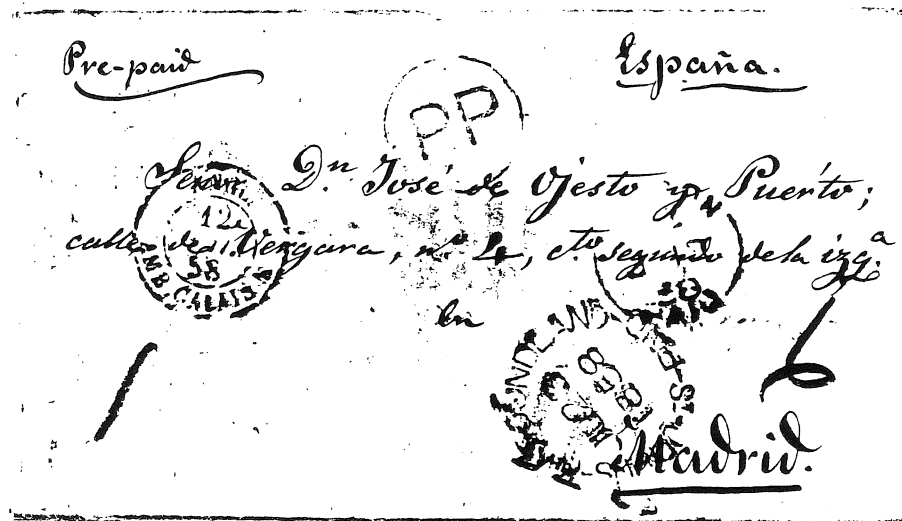 Pre-paid
España.
PP
Señor Dn José de Ojesto y Puerto;
calle de Vergara, nº 4, cto segundo de la izqª
12
58
CALAIS
en
Madrid.